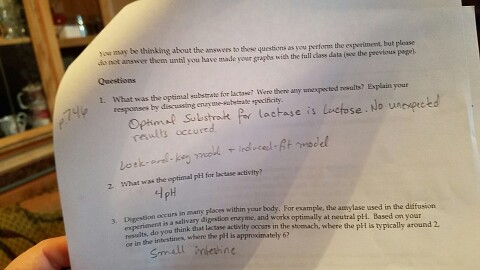 You may be thinking about the answers to these questions as you perform the experiment, but please
do not answer them until you have made your graphs with the full class data (see the previous page).
Questions
1. What was the optimal substrate for lactase? Were there any unexpected results? Explain your
responses by discussing enzyme-substrate specificity.
p.746
Optimal Substrate for lactase is Luctose. No unexpected
results occured.
Lock-and-key model + induced-fit model
2. What was the optimal pH for lactase activity?
4 pH
3. Digestion occurs in many places within your body. For example, the amylase used in the diffusion
experiment is a salivary digestion enzyme, and works optimally at neutral pH. Based on your
results, do you think that lactase activity occurs in the stomach, where the pH is typically around 2,
or in the intestines, where the pH is approximately 6?
Small intestine